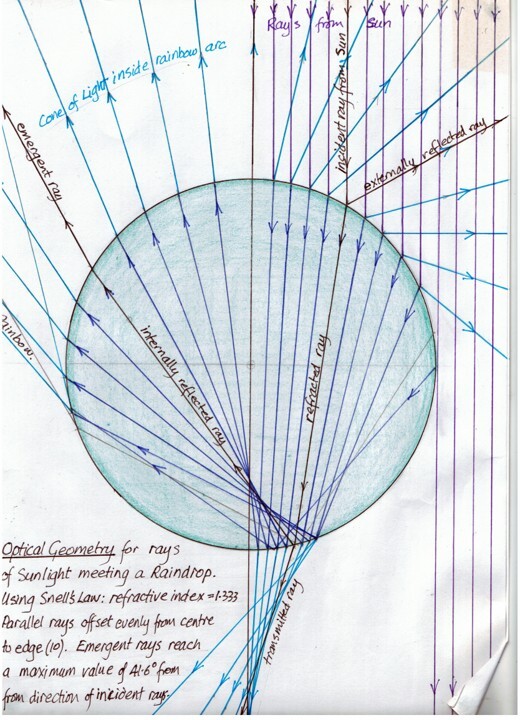 Rays from Sun
Cone of Light inside rainbow arc
incident ray from Sun
emergent ray
externally reflected ray
rainbow.
internally reflected ray
refracted ray
Optical Geometry for rays
of Sunlight meeting a Raindrop.
Using Snell's Law: refractive index = 1.333
Parallel rays offset evenly from centre
to edge (10). Emergent rays reach
a maximum value of 41.6° from
from direction of incident rays.
transmitted ray